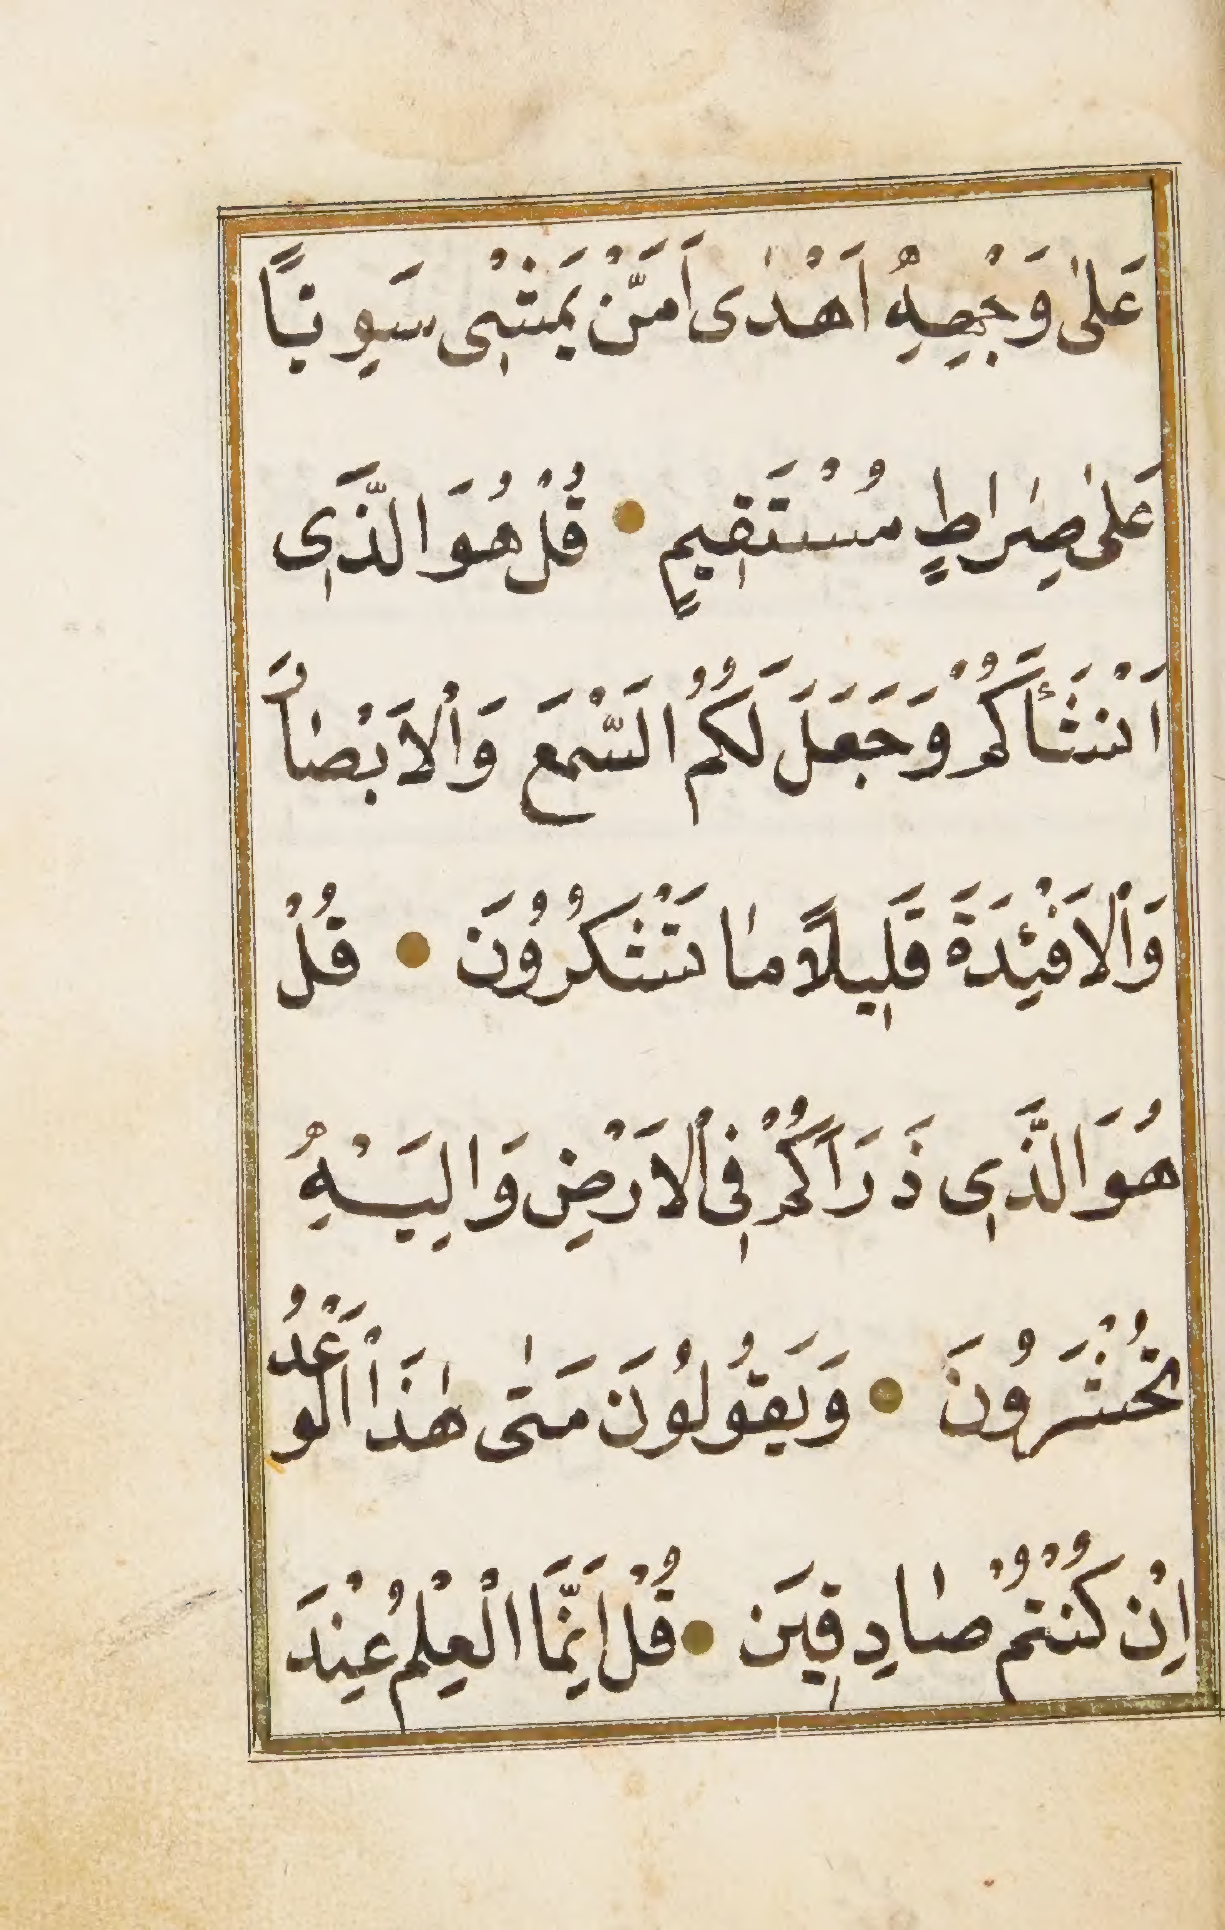 عَلٰى وَجْهِهِ اَهْدٰى اَمَّنْ يَمْشٖى سَوِيًّا
عَلٰى صِرَاطٍ مُسْتَقٖيمٍ ● قُلْ هُوَ الَّذٖى
اَنْشَأَكُمْ وَجَعَلَ لَكُمُ السَّمْعَ وَالْاَبْصَاَ
وَالْاَفْئِدَةَ قَلٖيلاً مَا تَشْكُرُونَ ● قُلْ
هُوَ الَّذٖى ذَرَاَكُمْ فٖى الْاَرْضِ وَاِلَيْهِ
تُحْشَرُونَ ● وَيَقُولُونَ مَتٰى هٰذَا الْوَعْدُ
اِنْ كُنْتُمْ صَادِقٖينَ ● قُلْ اِنَّمَا الْعِلْمُ عِنْدَ